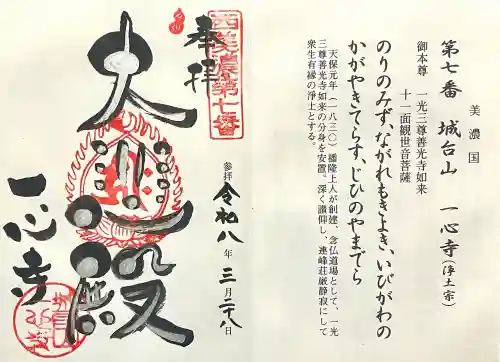 美濃国
第七番 城台山 一心寺(浄土宗)
御本尊 一光三尊善光寺如来
十一面観世音菩薩
のりのみず、ながれもきよき、いびがわの
かがやきてらす、じひのやまでら
天保元年(一八三〇)播隆上人が創建、念仏道場として、一光
三尊善光寺如来の分身を安置。深く讃仰し、連峰荘厳静寂にして
衆生有縁の浄土とする。
西美濃第七番
奉拝
参拝 令和八年三月二十八日
大悲殿
一心寺